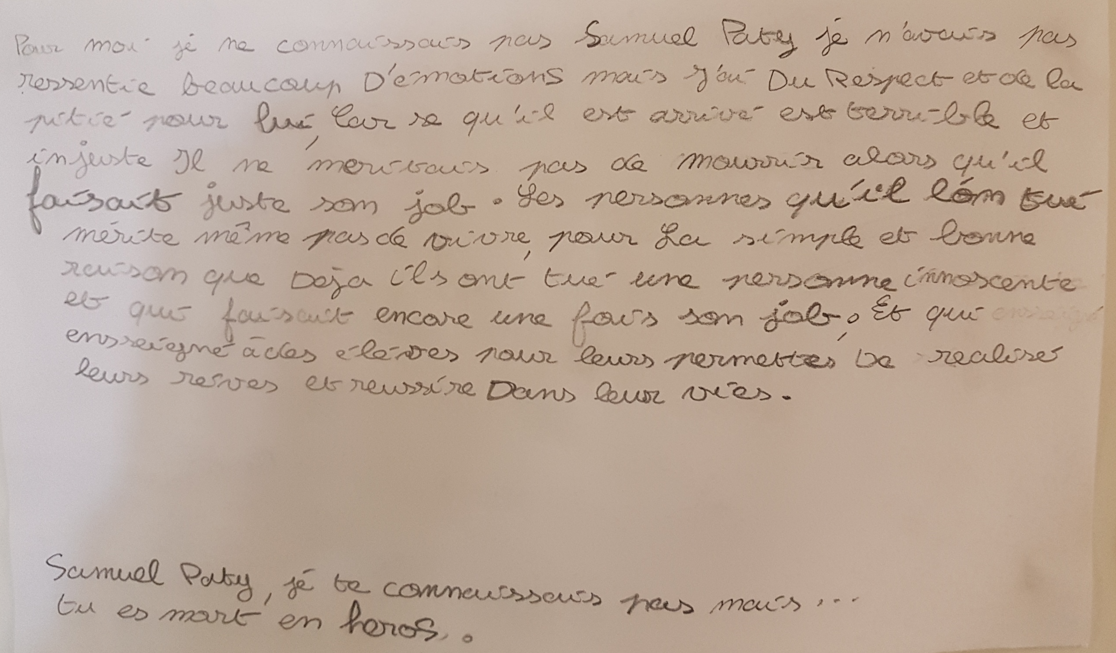 Pour moi jé ne connaissais pas Samuel Paty jé n'avais pas
ressentie beaucoup D'émotions mais J'ai Du Respect et de la
pitié pour lui, Car se qu'il est arrivé est terrible et
injuste Il ne méritais pas de mourrir alors qu'il
faisait juste son job. Les personnes qu'il l'on tué
mérite même pas de vivre, pour La simple et bonne
raison que Deja ils ont tué une personne innoscente
et qui faisait encore une fois son job. Et qui
ensseigné à des élèves pour leurs permettes De realisé
leurs reives et reussire Dans leur vies.
Samuel Paty, jé te connaissais pas mais...
tu es mort en heros..